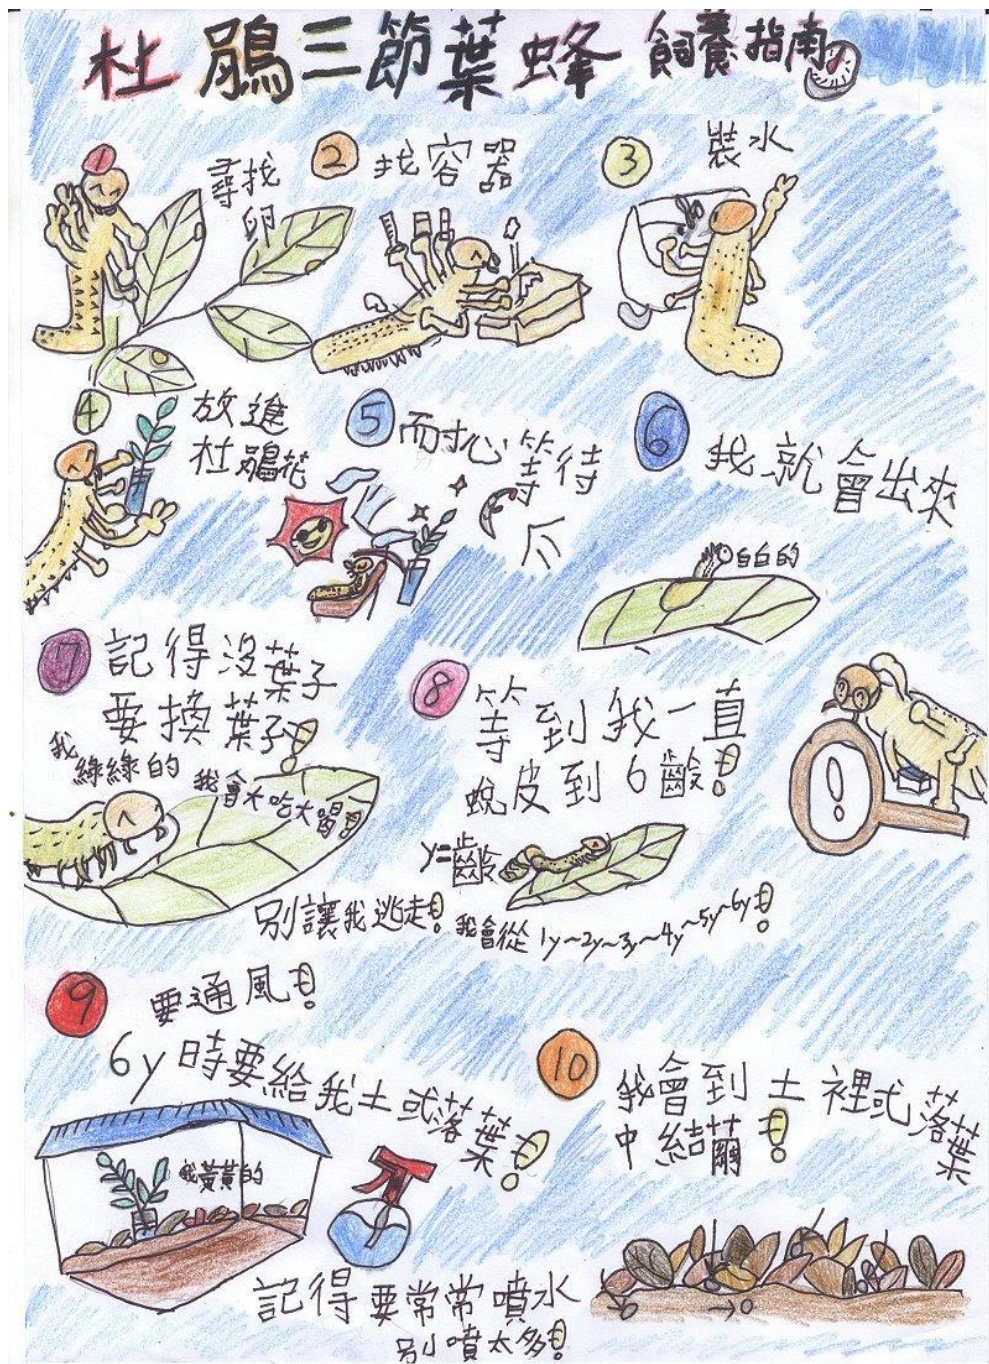 杜鵑三節葉蜂 飼養指南
1
尋找
卵
2
找容器
3
裝水
4
放進
杜鵑花
5
耐心等待
6
我就會出來
白白的
7
記得沒葉子
要換葉子!
我
綠綠的
我會大吃大喝!
別讓我逃走!
8
等到我一直
蛻皮到6齡!
y=齡
我會從1y~2y~3y~4y~5y~6y!
!
9
要通風!
6y時要給我土或落葉!
我黃黃的
記得要常常噴水
別噴太多!
10
我會到土裡或落葉
中結繭!